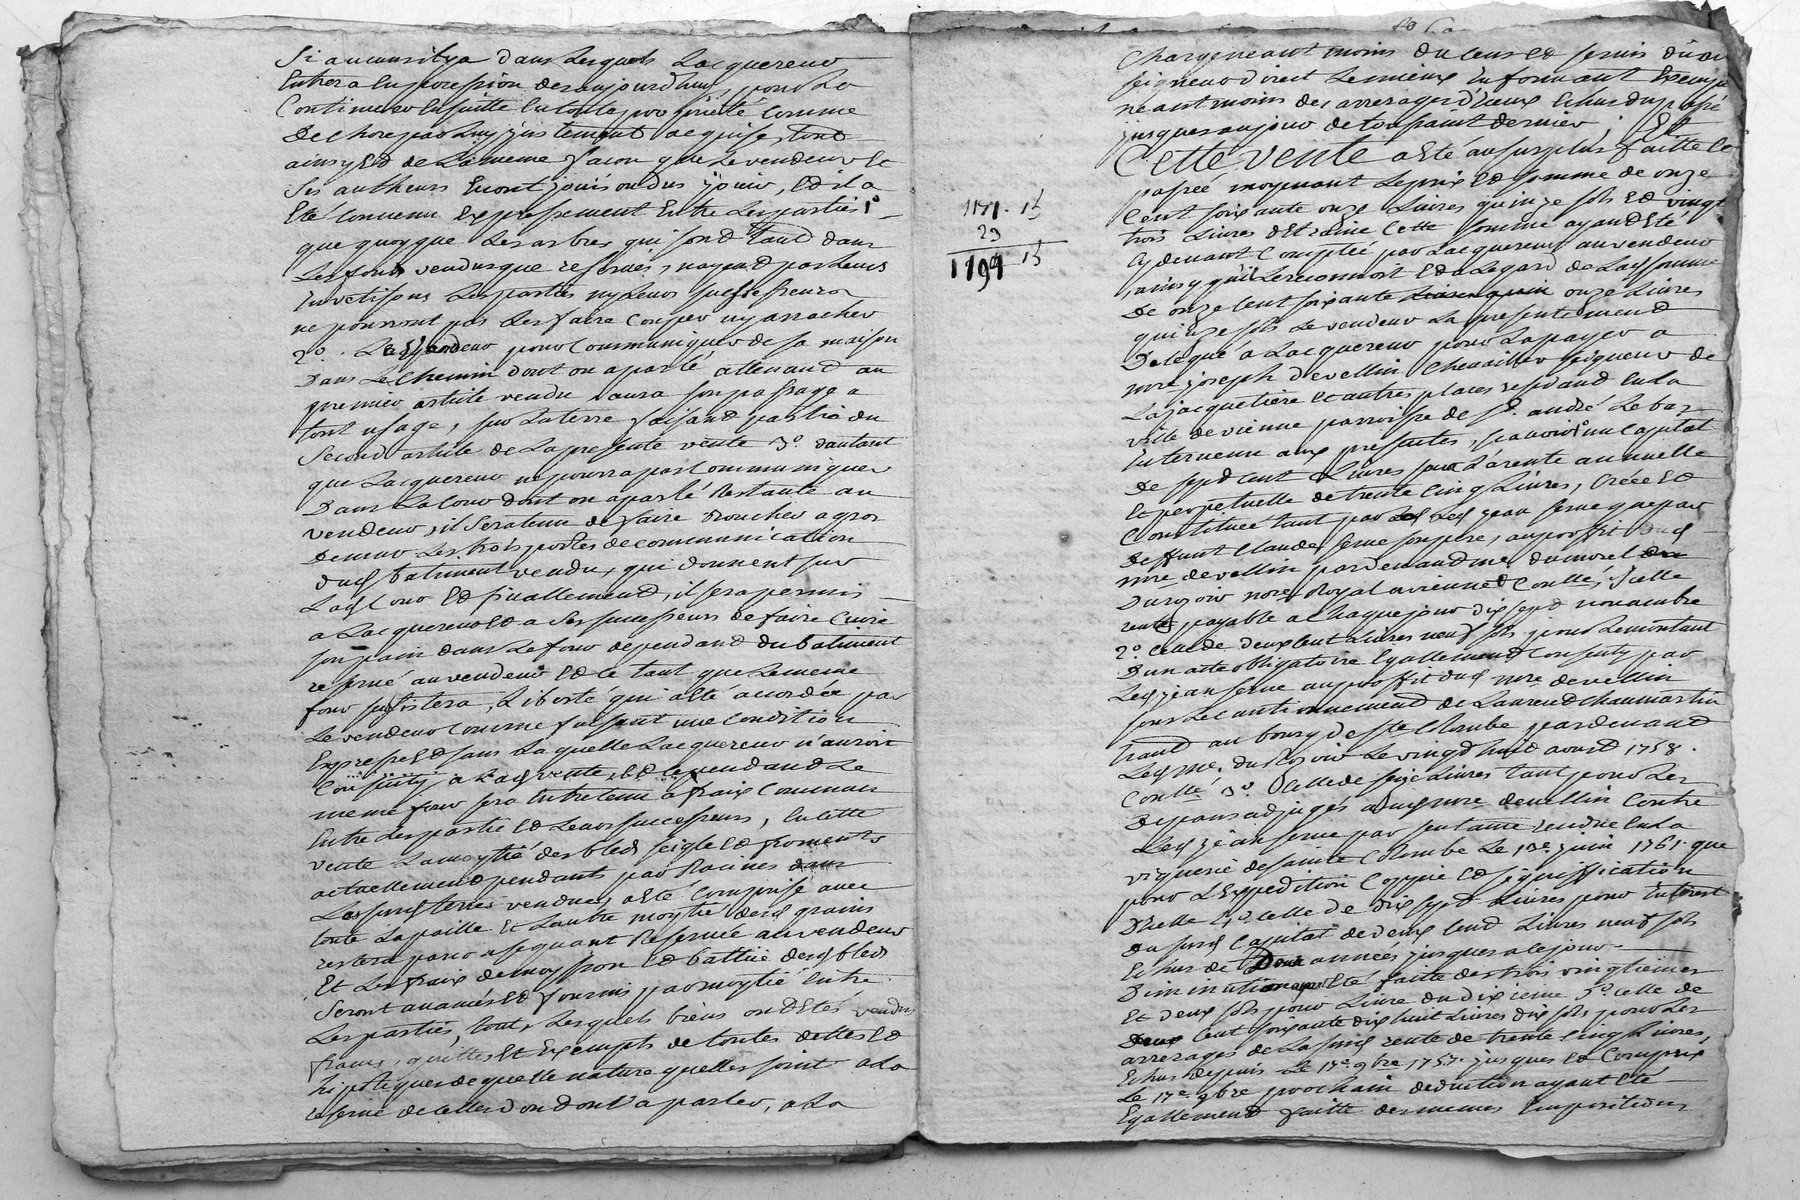 Si aucuns il y a dans lesquels lacquereur
Entrera en possession dez aujourdhuy, pour la
Continuer ensuitte en toute proprieté comme
De chose par luy justement acquise, tout
ainsy Et de la meme facon que le vendeur Et
Ses autheurs En ont jouis ou dus jouir, Et il a
Eté convenu Expressement Entre les parties 1°
que quoyque les arbres qui sont tant dans
Les fonds vendus que reservés, n'ayent pas leurs
les parties ny leurs successeurs
ne pourront pas les faire couper ny arracher
2°. Le vendeur pour Communiquer de sa maison
Dans Le Chemin dont on a parlé attenant au
premier article vendu aura son passage a
tout usage, sur la terre faisant partie du
Second article de La presente vente 3° dautant
que Lacquereur ne pourra pas Communiquer
Dans La Cour dont on a parlé Restante au
vendeur, il sera tenu de faire Boucher a gros
De mur Les trois portes de communication
dud batiment vendu, qui donnent sur
Lad Cour Et finallement, il sera permis
a Lacquereur Et a Ses successeurs de faire Cuire
son pain dans Le four dependant du batiment
reservé au vendeur Et ce tant que Le meme
four subsistera, Liberté qui a Eté accordée par
Le vendeur comme faisant une condition
Expresse Et sans La quelle Lacquereur n'auroit
Consenty a Lad vente, Et cependant Le
meme four sera Entretenu a fraix Communs
Entre Les parties Et Leurs successeurs, En cette
vente La moytié des bleds seigle Et froments
actuellement pendants par Racines dans
Les susd terres vendues, a Eté Comprise avec
toute La paille Et Lautre moytié desd grains
restera par consequant Reservée au vendeur
Et Les fraix de moysson Et battüe desd bleds
Seront avancés Et fournis par moytié Entre
Les parties, tous Lesquels biens ont Etés vendus
francs, quittes Et Exempts de toutes dettes Et
hipoteques de quelle nature quelles soint a La
reserve de celles dont on va parler, a La
1171. 15
23
1194 15
Chargé neant moins du Cens Et servis dû au
seigneur direct Le mieux En formant Exempt
neant moins des arrerages d'iceux Echus du passé
jusques au jour de toussaint dernier; Et
Cette vente a Eté au surplus faitte Et
passée moyenant Le prix Et somme de onze
Cent soixante onze Livres quinze sols Et vingt
trois Livres d'Etraine Cette somme ayant Eté
Cy devant Comptée par Lacquereur au vendeur
ainsy qu'il Le reconnoit Et a Legard de Lad somme
De onze Cent soixante onze Livres
quinze sols Le vendeur La presentement
Delegué a Lacquereur pour La payer a
mre joseph Devellin Chevallier seigneur de
La jacquetiere Et autres places residant En La
ville de vienne parroisse de St. andré Le bas
Intervenu aux presentes, scavoir 1° un Capital
De sept Cent Livres pour La rente annuelle
Et perpetuelle de trente Cinq Livres, Créée Et
Constituée tant par Led jean serve que par
Deffunt Claude serve son pere, au proffit dud
mre devellin pardevant me dumorel
Durozoir nore Royal a vienne Et Contllé, Icelle
rente payable a Chaque jour dix sept novembre
2° Celle de deux Cent Livres neuf sols pour Le montant
D'un acte obligatoire Egallement Consenty par
Led jean serve au proffit dud mre devellin
sous Le Cautionnement de Laurend Chaumartin
trand au bourg de Ste Colombe pardevand
Led me. du Rozoir Le vingt huit avoust 1758.
Contllé 3°. Celle de seize Livres tant pour Les
Depans adjugés aud sr mre devellin Contre
Led jean serve par sentance rendue En La
viguerie de Sainte Colombe Le 13e juin 1761. que
pour L'Expedition Coppie Et signiffication
D'Icelle 4°. Celle de dix sept Livres pour Interest
Du susd Capital de deux Cent Livres neuf sols
Echus de Deux années jusques a ce jour
Diminution ayant Eté faite des trois vingtiemes
Et deux sols pour Livre du dixieme 5° Celle de
Deux Cent soixante dix huit Livres dix sols pour Les
arrerages de La susd rente de trente Cinq Livres,
Echus depuis Le 17e 9bre 1757. jusques Et Compris
Le 17e 9bre prochain deduction ayant Eté
Egallement faitte des memes Impositions